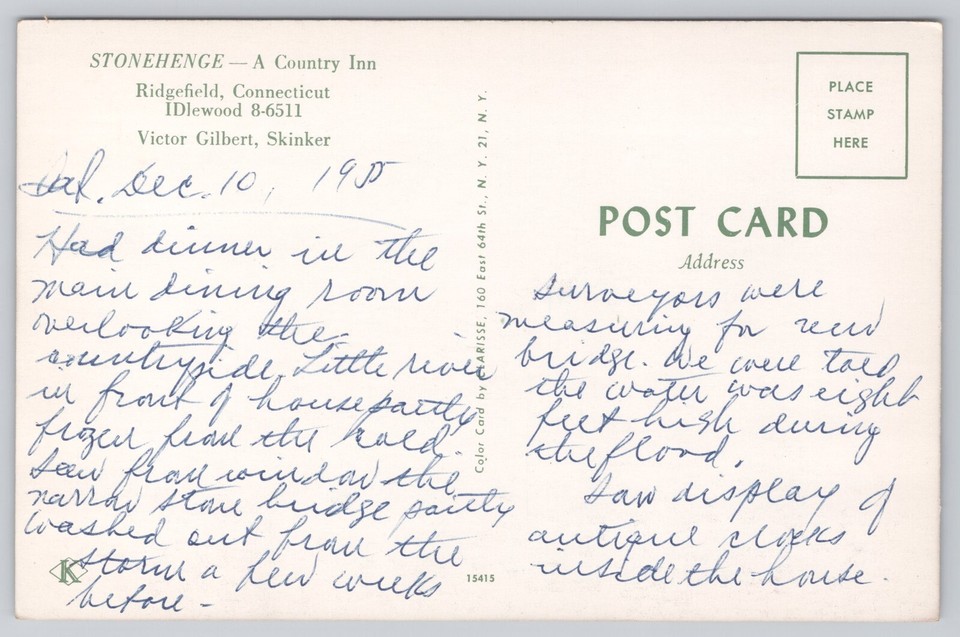 STONEHENGE — A Country Inn
Ridgefield, Connecticut
IDlewood 8-6511
Victor Gilbert, Skinker
Sat. Dec. 10, 1955
Had dinner in the
main dining room
overlooking the
countryside. Little river
in front of house partly
frozen from the cold.
Saw from window the
narrow stone bridge partly
washed out from the
storm a few weeks
before -
K
Color Card by CLARISSE, 160 East 64th St., N. Y. 21, N. Y.
15415
PLACE
STAMP
HERE
POST CARD
Address
Surveyors were
measuring for new
bridge. We were told
the water was eight
feet high during
the flood.
Saw display of
antique clocks
inside the house.